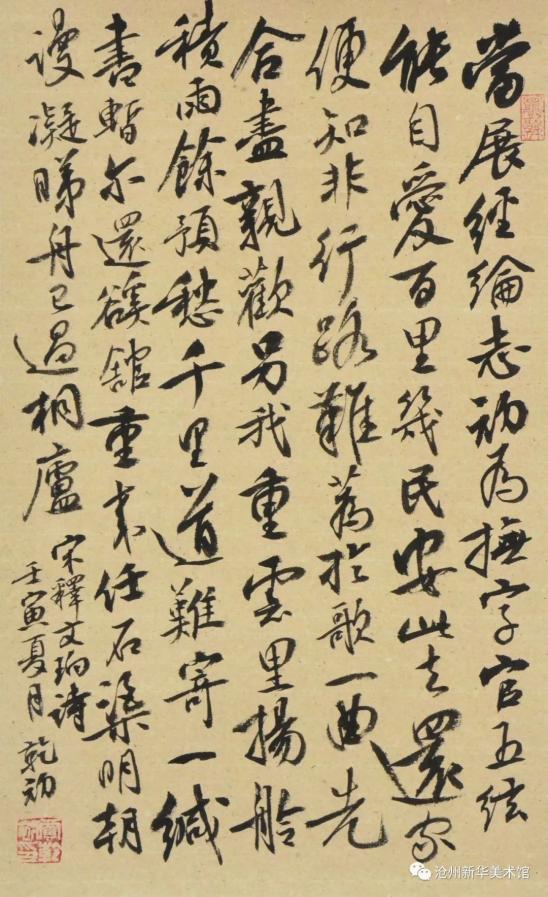 當展經綸志初為撫字官五絃
能自愛百里幾民安此去還家
便知非行路難為於歌一曲先
合盡親歡另我重雲里揚舲
積雨餘預愁千里道難寄一緘
書暫尔還溪館重來任石渠明朝
謾凝睇舟已過桐廬
宋釋文珦詩
壬寅夏月 乾初
沧州新华美术馆